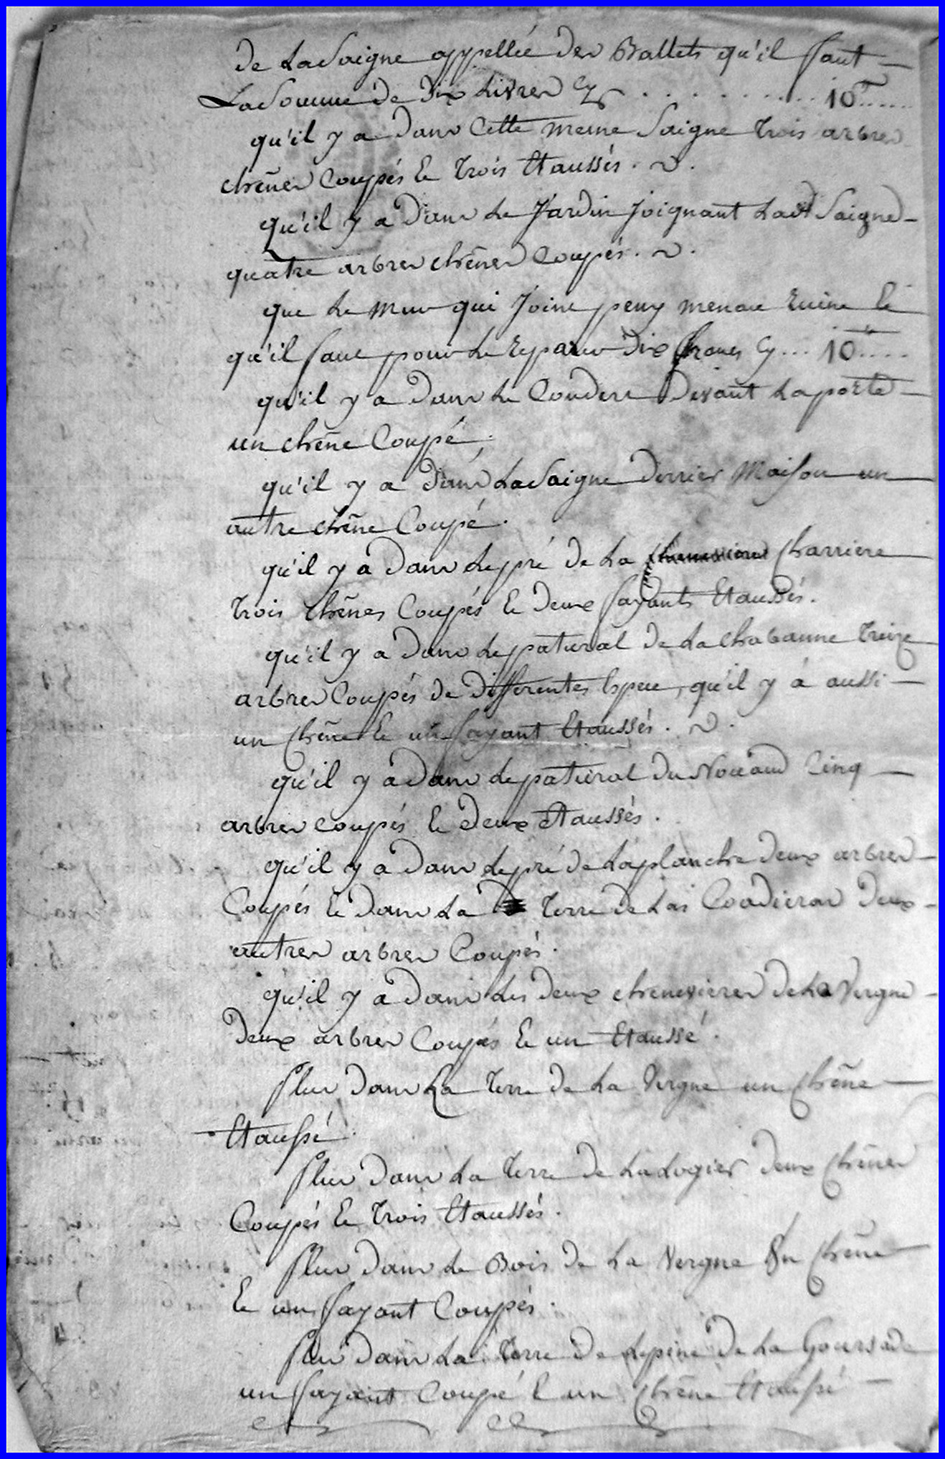 de La Saigne appellée des Ballets qu'il faut
La Somme de Dix Livres Cy . . . . . . . . . . 10# . . . .
qu'il y a dans Cette meme Saigne Trois arbres
chênes Coupés Et Trois Etaussés.
qu'il y a dans Le Jardin Joignant Ladt Saigne
quatre arbres chênes Coupés.
que Le mur qui Joint menace Ruine Et
qu'il faut pour Le Reparer Dix francs Cy ... 10# ....
qu'il y a dans Le Couderc Devant La porte
un chêne Coupé,
qu'il y a dans La Saigne derrier Maison un
autre chêne Coupé.
qu'il y a dans Le pré de La Charriere
Trois chênes Coupés Et deux fayants Etaussés.
qu'il y a dans Le patural de La Chabanne Treize
arbres Coupés de differentes Espece, qu'il y à aussi
un Chêne Et un fayant Etaussés.
qu'il y a dans Le patural du Nouaud Cinq
arbres coupés Et deux Etaussés.
qu'il y a dans Le pré de La planche deux arbres
Coupés Et dans La Terre de Las Coudieras deux
autres arbres Coupés.
qu'il y a dans Les deux chenevieres de La Vergne
Deux arbres Coupés Et un Etaussé.
Plus dans La Terre de La Vergne un Chêne
Etaussé.
Plus dans La Terre de La Logier deux Chênes
Coupés Et Trois Etaussés.
Plus dans Le Bois de La Vergne Un Chêne
Et un fayant Coupés.
Plus dans La Terre de Lepine de La Goursade
un fayant Coupé Et un Chêne Etaussé